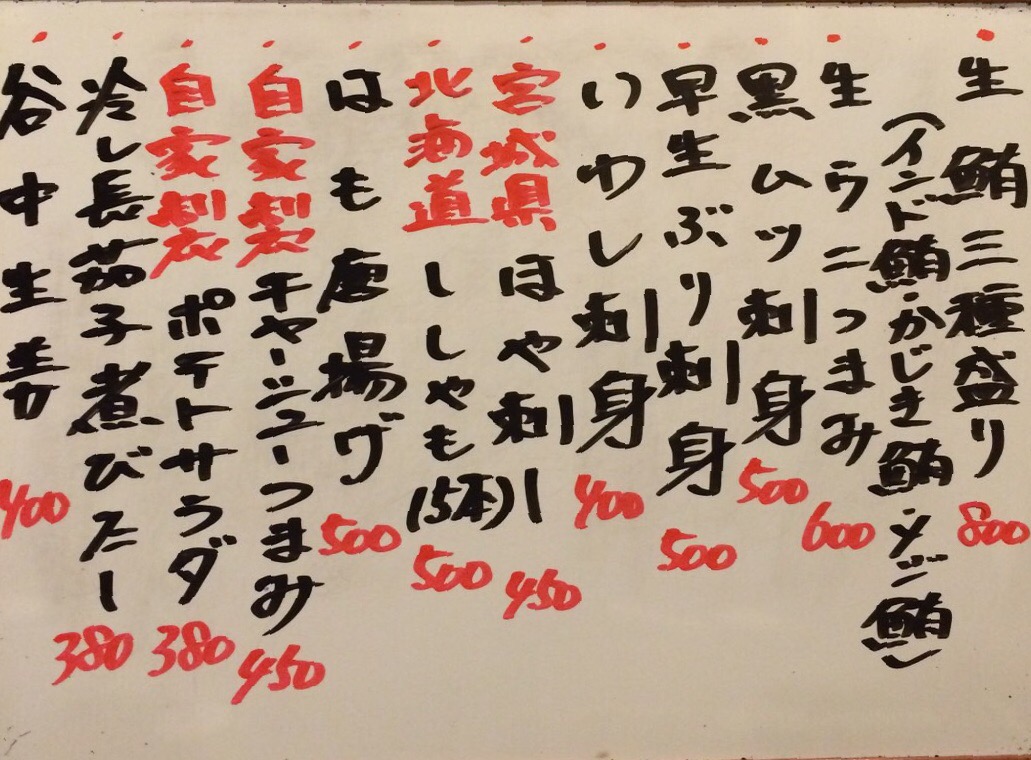 ・生鮪三種盛り 800
(インド鮪・かじき鮪・メジ鮪)
・生ウニつまみ 600
・黒ムツ刺身 500
・早生ぶり刺身 500
・いわし刺身 400
・宮城県ほや刺し 450
・北海道ししゃも(5本) 500
・はも唐揚げ 500
・自家製チャーシューつまみ 450
・自家製ポテトサラダ 380
・冷し長茄子煮びたし 380
・谷中生姜 400